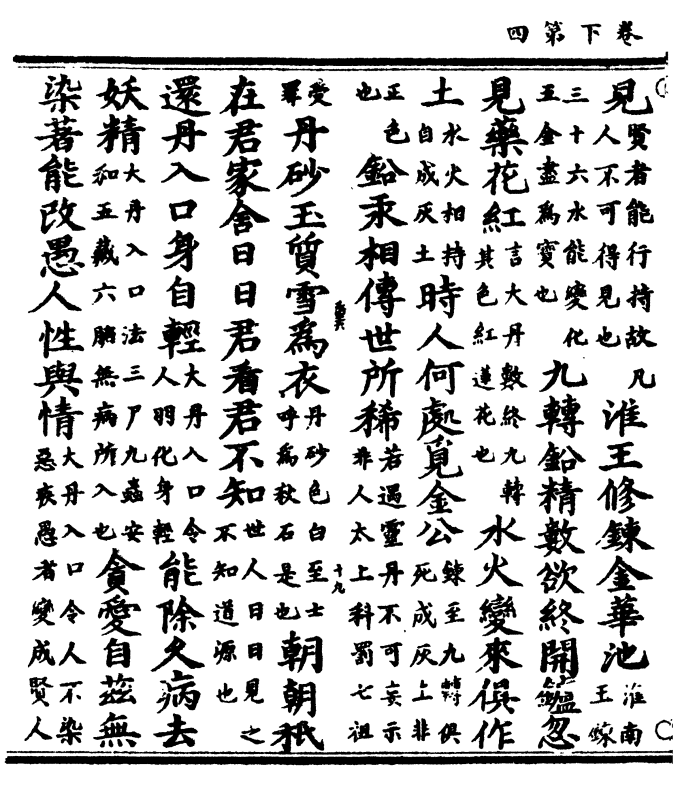 卷下第四
見賢者能行持故凡人不可得見也淮王修鍊金華池淮南王鍊
三十六水能變化五金盡為寶也九轉鉛精數欲終開鑪忽
見藥花紅言大丹數終九轉其色紅蓮花也水火變來俱作
土水火相持自成灰土時人何處覓金公鍊至九轉俱死成灰土非
正色也鉛汞相傳世所稀若遇靈丹不可妄示非人太上科罰七祖
受罪丹砂玉質雪為衣丹砂色白至士呼為秋石是也朝朝秖
十九
在君家舍日日君看君不知世人日日見之不知道源也
還丹入口身自輕大丹入口令人羽化身輕能除久病去
妖精大丹入口法三尸九蟲安和五藏六腑無病所入也貪愛自茲無
染著能改愚人性與情大丹入口令人不染惡疾愚者變成賢人